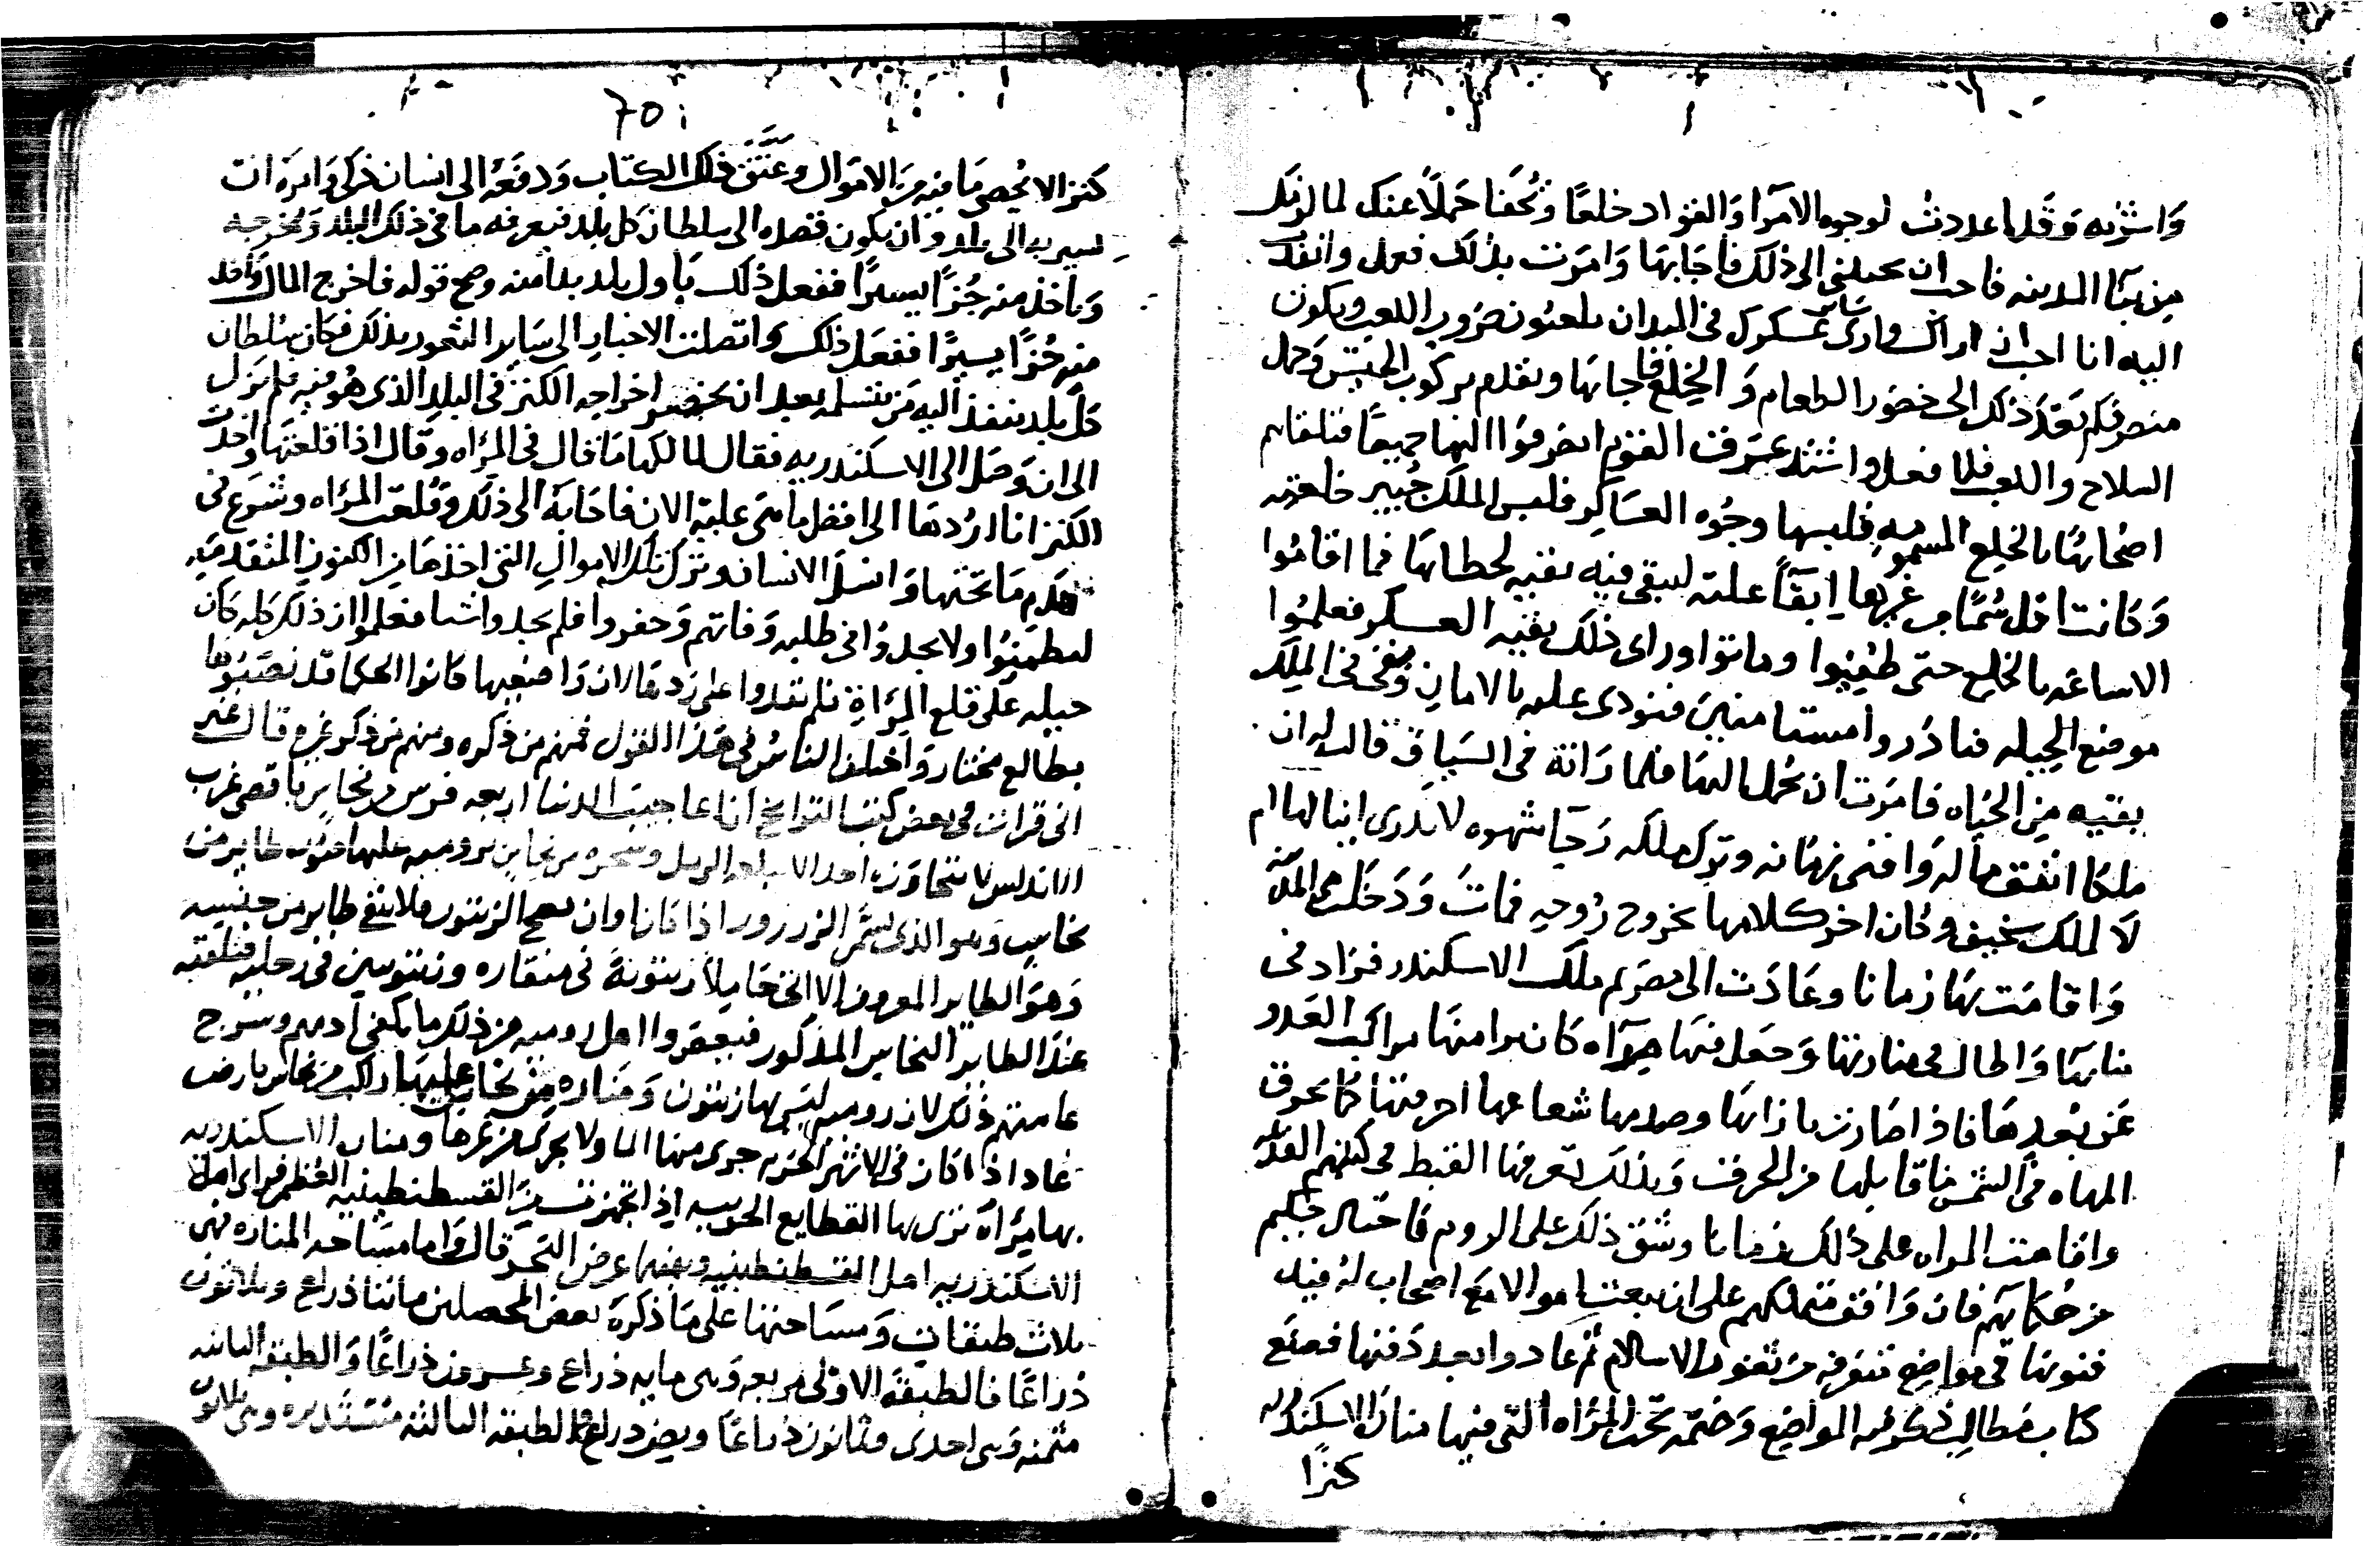 واشربه وقد اعددت لوجوه الامرا والقواد خلعا وتحفا حملا عنك لما لزمك
من بنا المدينه فاحب ان تجيبني الى ذلك فاجابها وامرت بذلك ففعل وانفذت
اليه انا احب ان اراك وارى ساير عسكرك في الميدان يلعبون ضروب اللعب ويكون
منصرفكم بعد ذلك الى حضور الطعام والخلع فاجابها وتقدم بركوب الجيش وحمل
السلاح واللعب فلما فعلوا واشتد عرق القوم انصرفوا اليها جميعا فتلقاهم
اصحابها بالخلع المسمومه فلبسها وجوه العساكر فلبس الملك جبير خلعته
وكانت اقل سما من غيرها ابقا عليه ليبقى فيه بقيه لخطابها فما اقاموا
الا ساعه بالخلع حتى طفيوا وماتوا وراى ذلك بقيه العسكر فعلموا
موضع الحيله فنادروا مستامنين فنودى عليهم بالامان وبقى في الملك
بقيه من الحياه فامرت ان يحمل اليها فلما راته في السياق قالت له ان
ملكا انفق ماله وافنى زمانه وترك ملكه رجا شهوه لا يدرى اينالها ام
لا لملك سخيف وكان اخر كلامها بخروج روحه فمات ودخلت هي المدينه
واقامت بها زمانا وعادت الى مصر ثم ملك الاسكندر فزاد في
بنايها واطال في منارتها وجعل فيها مراه كان يرا منها مراكب العدو
عن بعدها فاذا صارت بازايها وصدمها شعاعها احرقتها كما تحرق
المهاه في الشمس ما قابلها من الحرق وبذلك تعرفها القبط في كتبهم القديمه
واقامت المراه على ذلك زمانا وشق ذلك على الروم فاحتال حكيم
من حكمايهم فان وافق متملكهم على ان يبعث اموالا مع اصحاب له فيد
فنونها في مواضع متفرقه من ثغور الاسلام ثم عادوا بعد دفنها فصنع
كتاب مطالب ذكر فيه المواضع وختمه تحت المراه التي فيها منار الاسكندريه
كنزا
70
كنزا لا يحصى ما فيه من الاموال وعتق ذلك الكتاب ودفعه الى انسان ذكى وامره ان
يسير به الى بلد وان يكون قصده الى سلطان كل بلد فيعرفه ما في ذلك البلد ويخرجه
وياخذ منه جزا يسيرا ففعل ذلك باول بلد بدا منه وصح قوله فاخرج المال واخذ
منه جزا يسيرا ففعل ذلك واتصلت الاخبار الى ساير الثغور بذلك فكان سلطان
كل بلد ينفذ اليه من يتسلمه بعد ان يحضر اخراجه الكنز في البلد الذى هو فيه فلم يزل
الى ان وصل الى الاسكندريه فقال لمالكها ما قال في المراه وقال اذا قلعتها واخذت
الكنز انا اردها الى افضل ما هي عليه الان فاجابه الى ذلك وقلعت المراه وشرع في
هدم ما تحتها وانسل الانسان وترك تلك الاموال التي اخذها من الكنوز المتقدمه
ليطمنوا ولا يجدوا في طلبه وفاتهم وحفروا فلم يجدوا شيا فعلموا ان ذلك كله كان
حيله على قلع المراة فلم يقدروا على ردها لان واضعيها كانوا الحكما قد نصبوها
بطالع مختار واختلف الناس في هذا القول فمنهم من ذكره ومنهم من ذكر غيره قال غير
اني قرات في بعض كتب التواريخ ان اعاجيب الدنيا اربعه فرس من نحاس باقصى غرب
الاندلس لا يتجاوزه احد الا ابتلعه الرمل وشجره من نحاس برومية عليها طاير من
نحاس وهو الذى يسمى الزرزور اذا كان اوان نضج الزيتون فلا يبقى طاير من جنسه
وهو الطاير المعروف الا اتى حاملا زيتونة في منقاره وزيتونتين في رجليه فتلقيه
عند الطاير النحاس المذكور فيعصروا اهل روميه من ذلك ما يكفي ادمهم وسرج
عامتهم ذلك لان روميه ليس بها زيتون ومناره من نحاس عليها راكب من نحاس بارض
عاد اذا كان في الاشهر الحرم جرى منها الما ولا يجرى من غيرها ومنار الاسكندريه
بها مراة ترى بها القطايع الحربيه اذا تجهزت من القسطنطينيه العظمى فراى اهل
الاسكندريه اهل القسطنطينيه وبينها عرض البحر قال واما مساحه المناره فهي
ثلاث طبقات ومساحتها على ما ذكره بعض المحصلين مايتا ذراع وثلاثون
ذراعا فالطبقه الاولى مربعه وهي مايه ذراع وعشرون ذراعا والطبقه الثانيه
مثمنه وهي احدى وثمانون ذراعا ونصف ذراع والطبقه الثالثه مستديره وهي ثلاثون